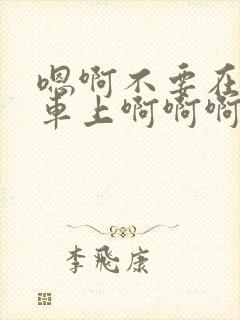 嗯啊不要在
車上啊啊啊
李飛康